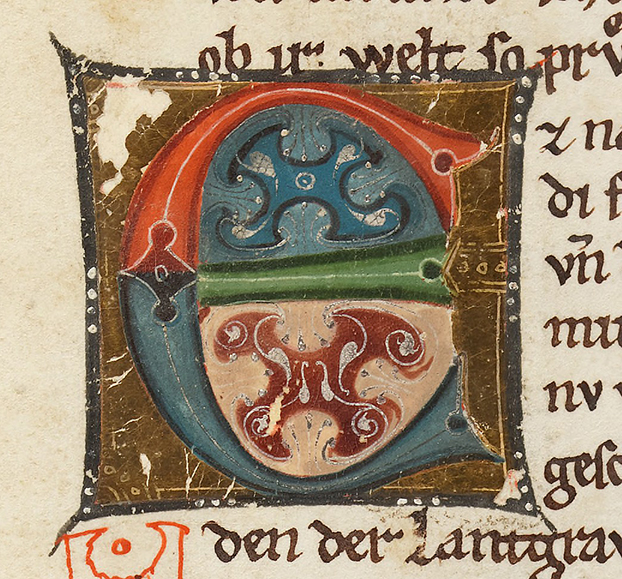 ob ur welt so prv
E
z na
di f
vn̄
mu
nv v
gesc
den der Lantgrav